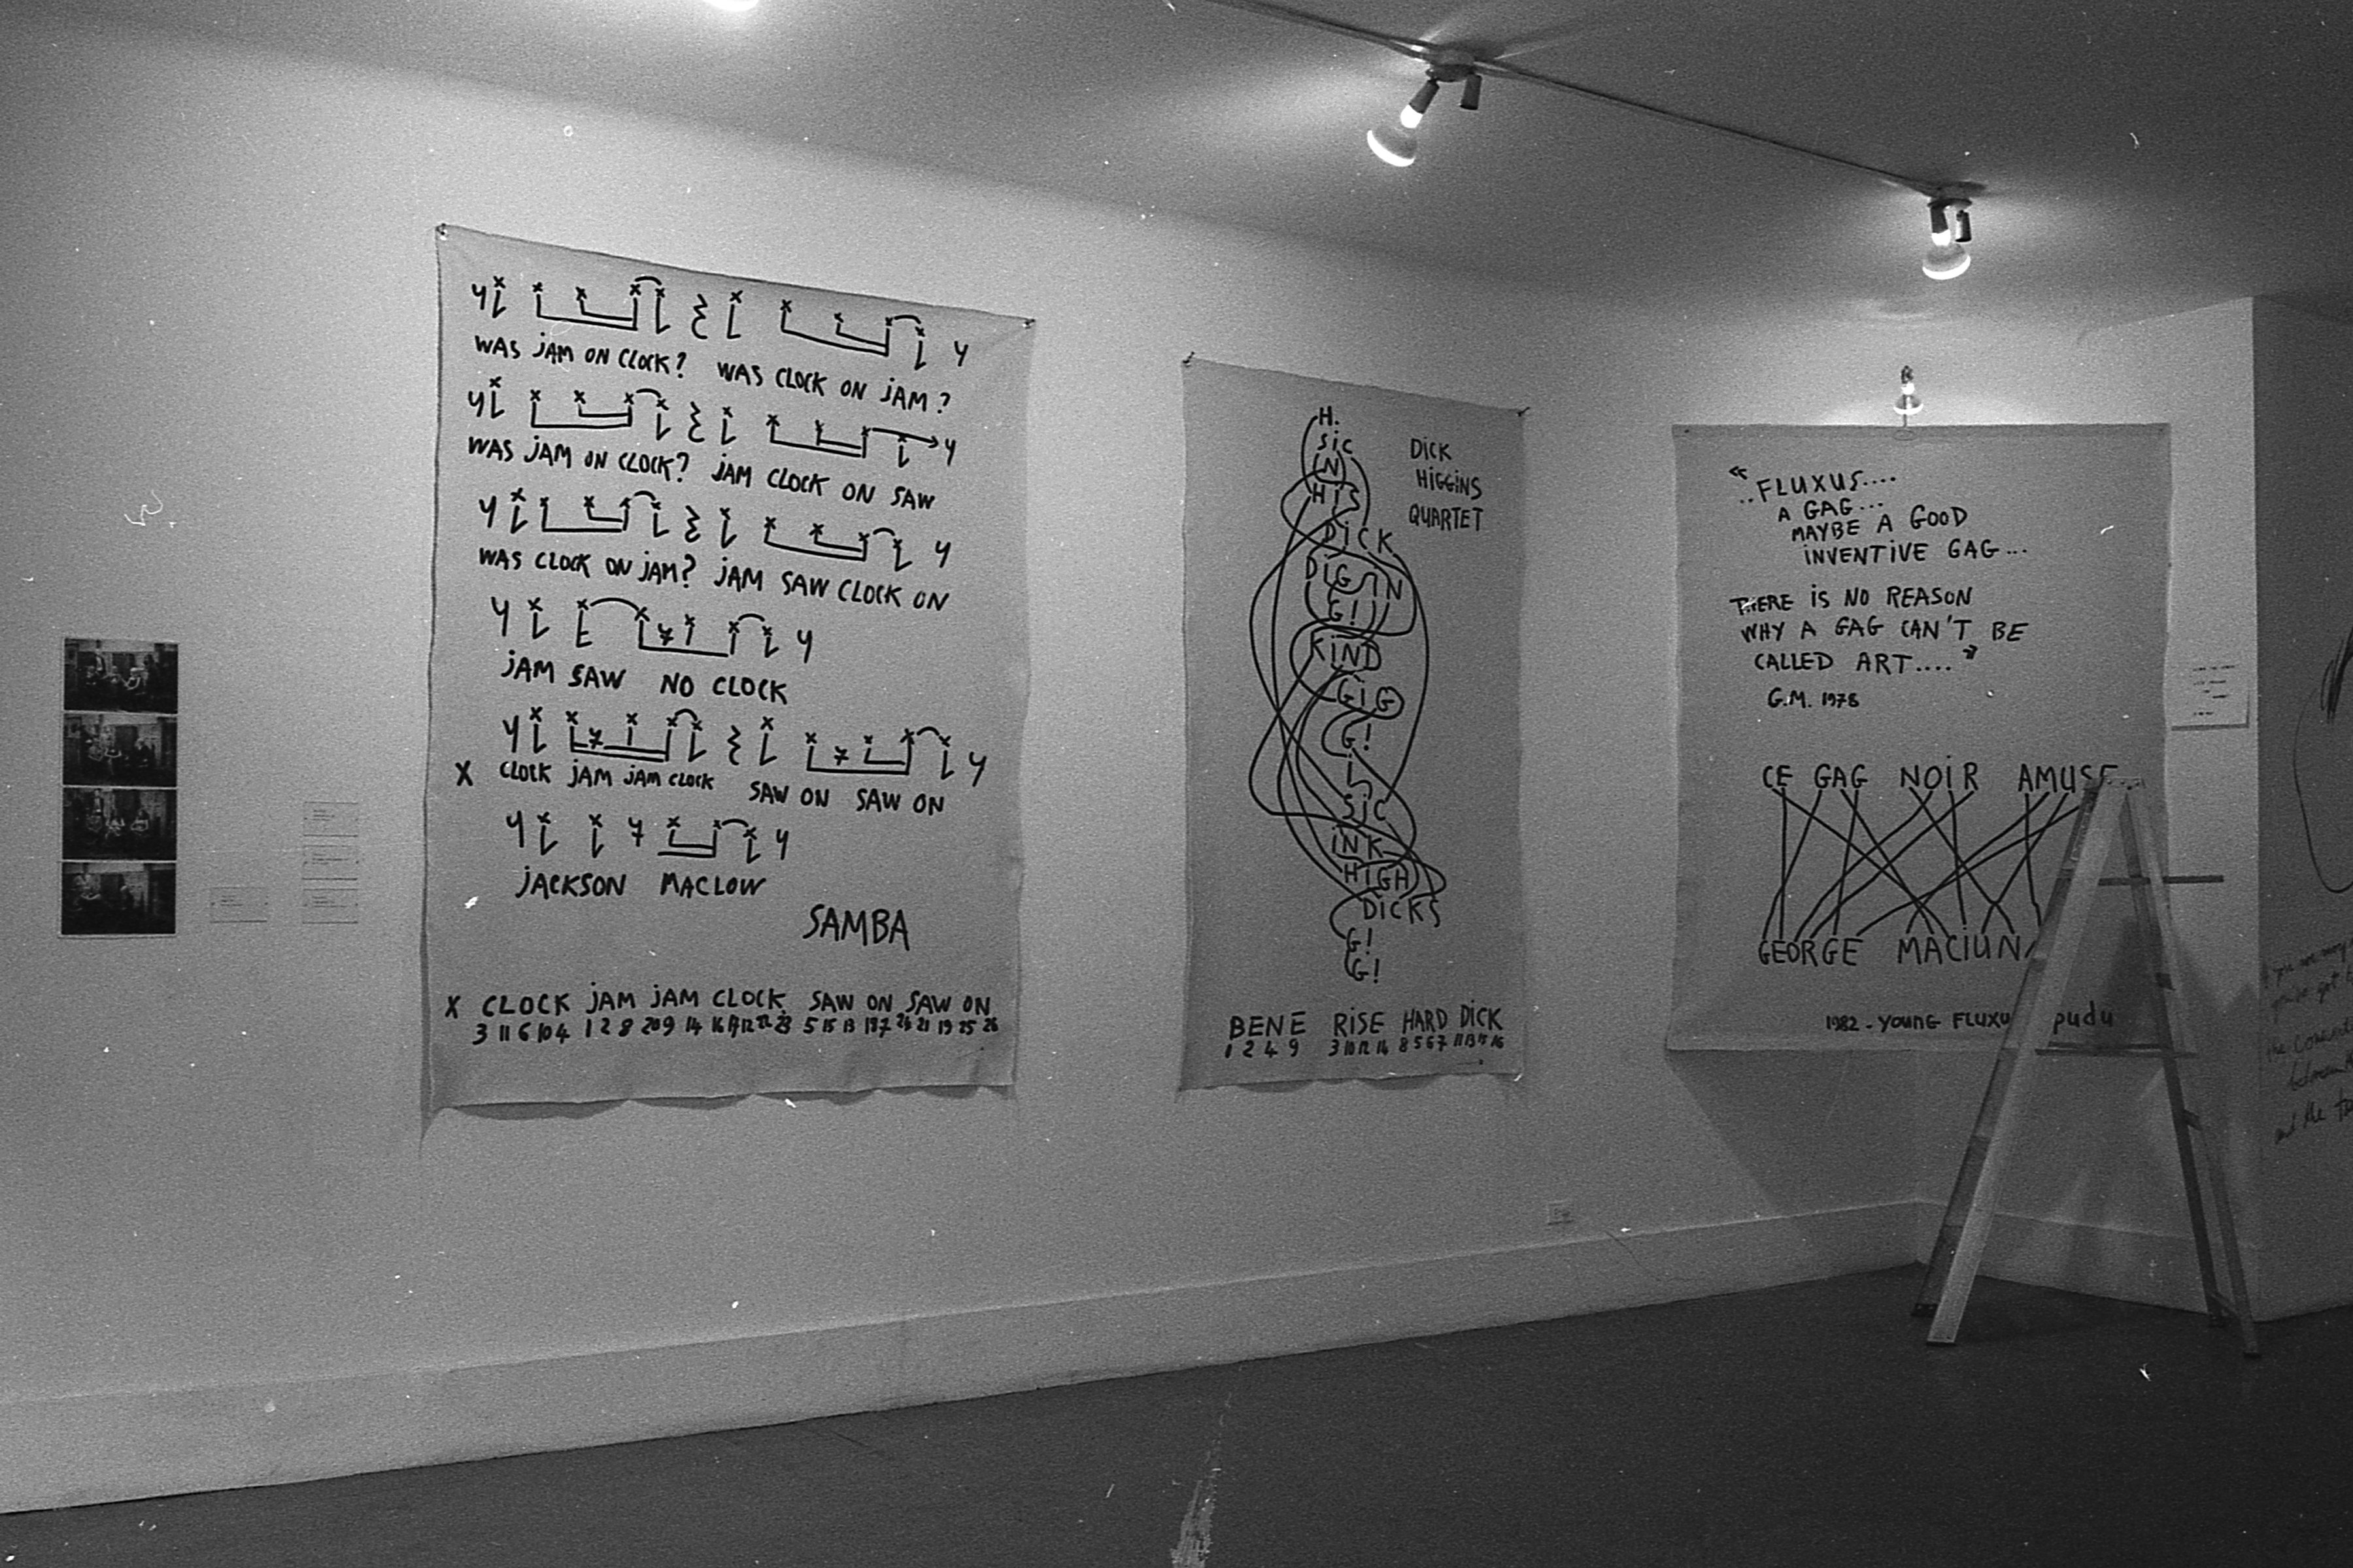 WAS JAM ON CLOCK? WAS CLOCK ON JAM?
WAS JAM ON CLOCK? JAM CLOCK ON SAW
WAS CLOCK ON JAM? JAM SAW CLOCK ON
JAM SAW NO CLOCK
X CLOCK JAM JAM CLOCK SAW ON SAW ON
JACKSON MACLOW
SAMBA
X CLOCK JAM JAM CLOCK SAW ON SAW ON
3 11 6 10 4 1 2 8 20 9 14 16 17 12 22 23 5 15 13 18 7 24 21 19 25 26
H.
SIC
(N)
HIS
DICK
DIG IN
G!
KIND
GIG
G!
I
SIC
INK
HIGH
DICKS
G!
G!
DICK
HIGGINS
QUARTET
BENE RISE HARD DICK
1 2 4 9 3 10 12 14 8 5 6 7 11 13 15 16
"
..FLUXUS....
A GAG...
MAYBE A GOOD
INVENTIVE GAG...
THERE IS NO REASON
WHY A GAG CAN'T BE
CALLED ART...."
G.M. 1978
CE GAG NOIR AMUSE
GEORGE MACIUN
1982 - YOUNG FLUXU pudu
you
got
the
between
and the